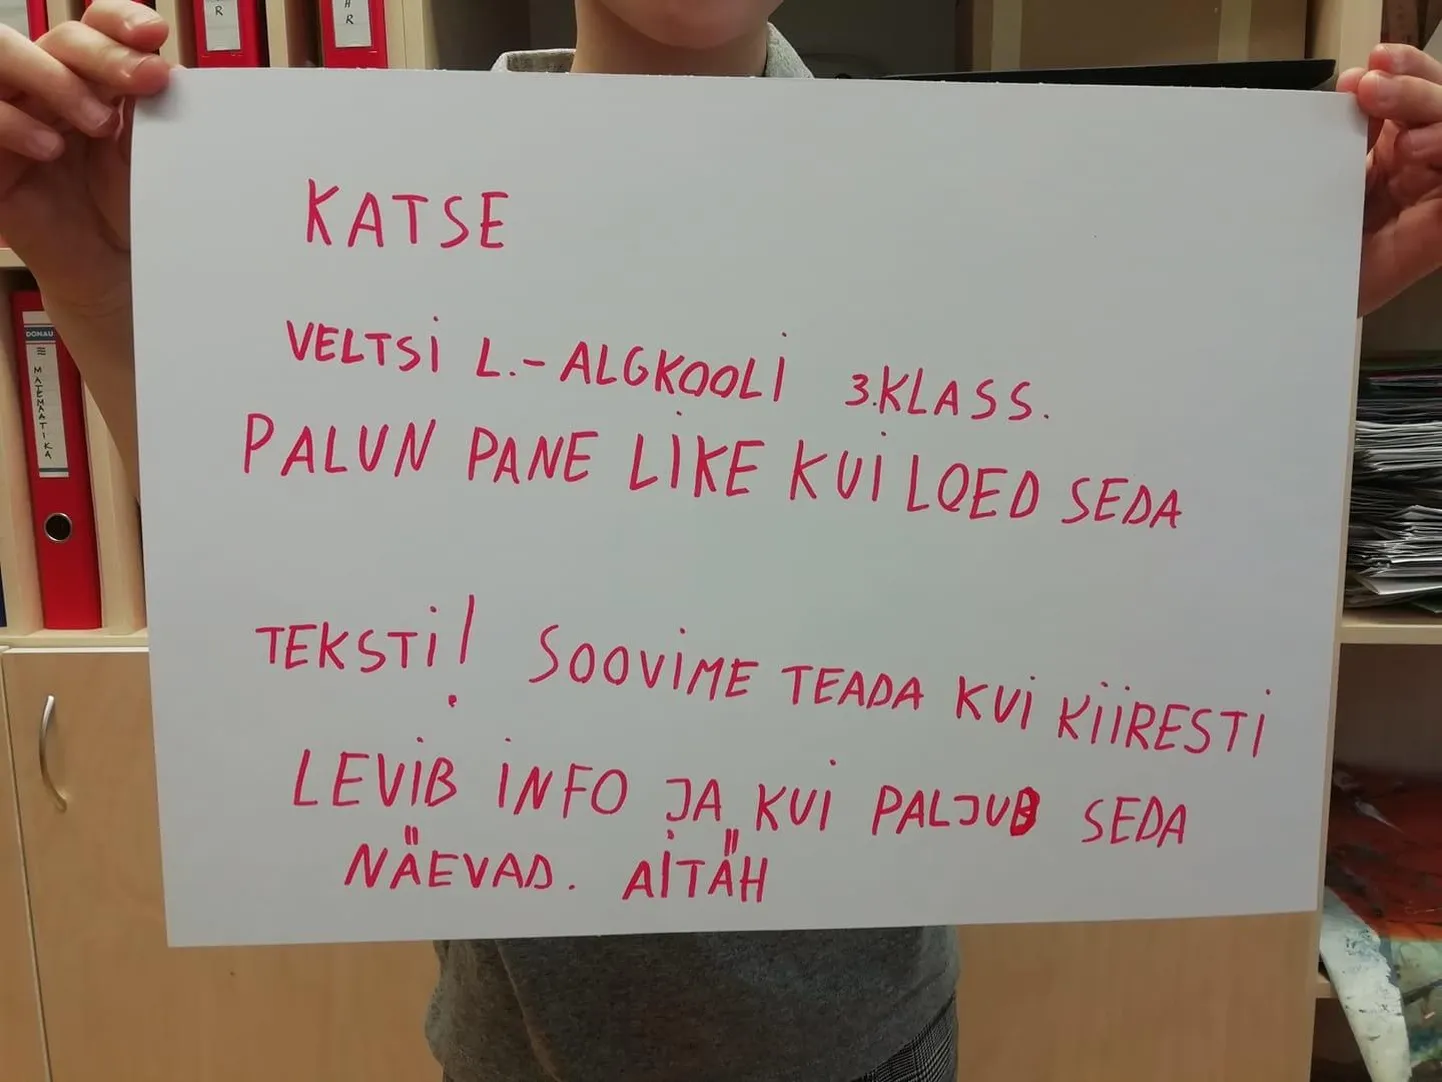 R
HR
KATSE
VELTSI L.-ALGKOOLI 3.KLASS.
PALUN PANE LIKE KUI LOED SEDA
TEKSTI! SOOVIME TEADA KUI KIIRESTI
LEVIB INFO JA KUI PALJUD SEDA
NÄEVAD. AITÄH
DONAU
MATEMAATIKA